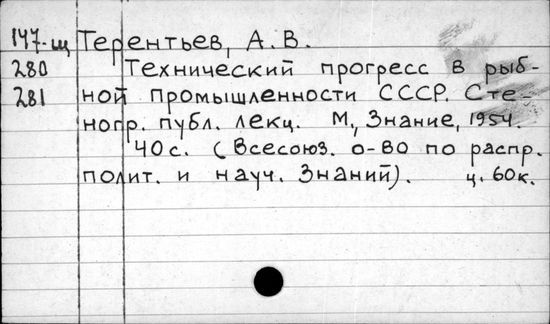 147-щ Терентьев, А. В.
280 Технический прогресс в рыб-
281 ной промышленности СССР. Сте-
нопр. публ. лекц. М, Знание, 1954.
40 с. (Всесоюз. о-во по распр.
полит. и науч. Знаний). ц. 60к.